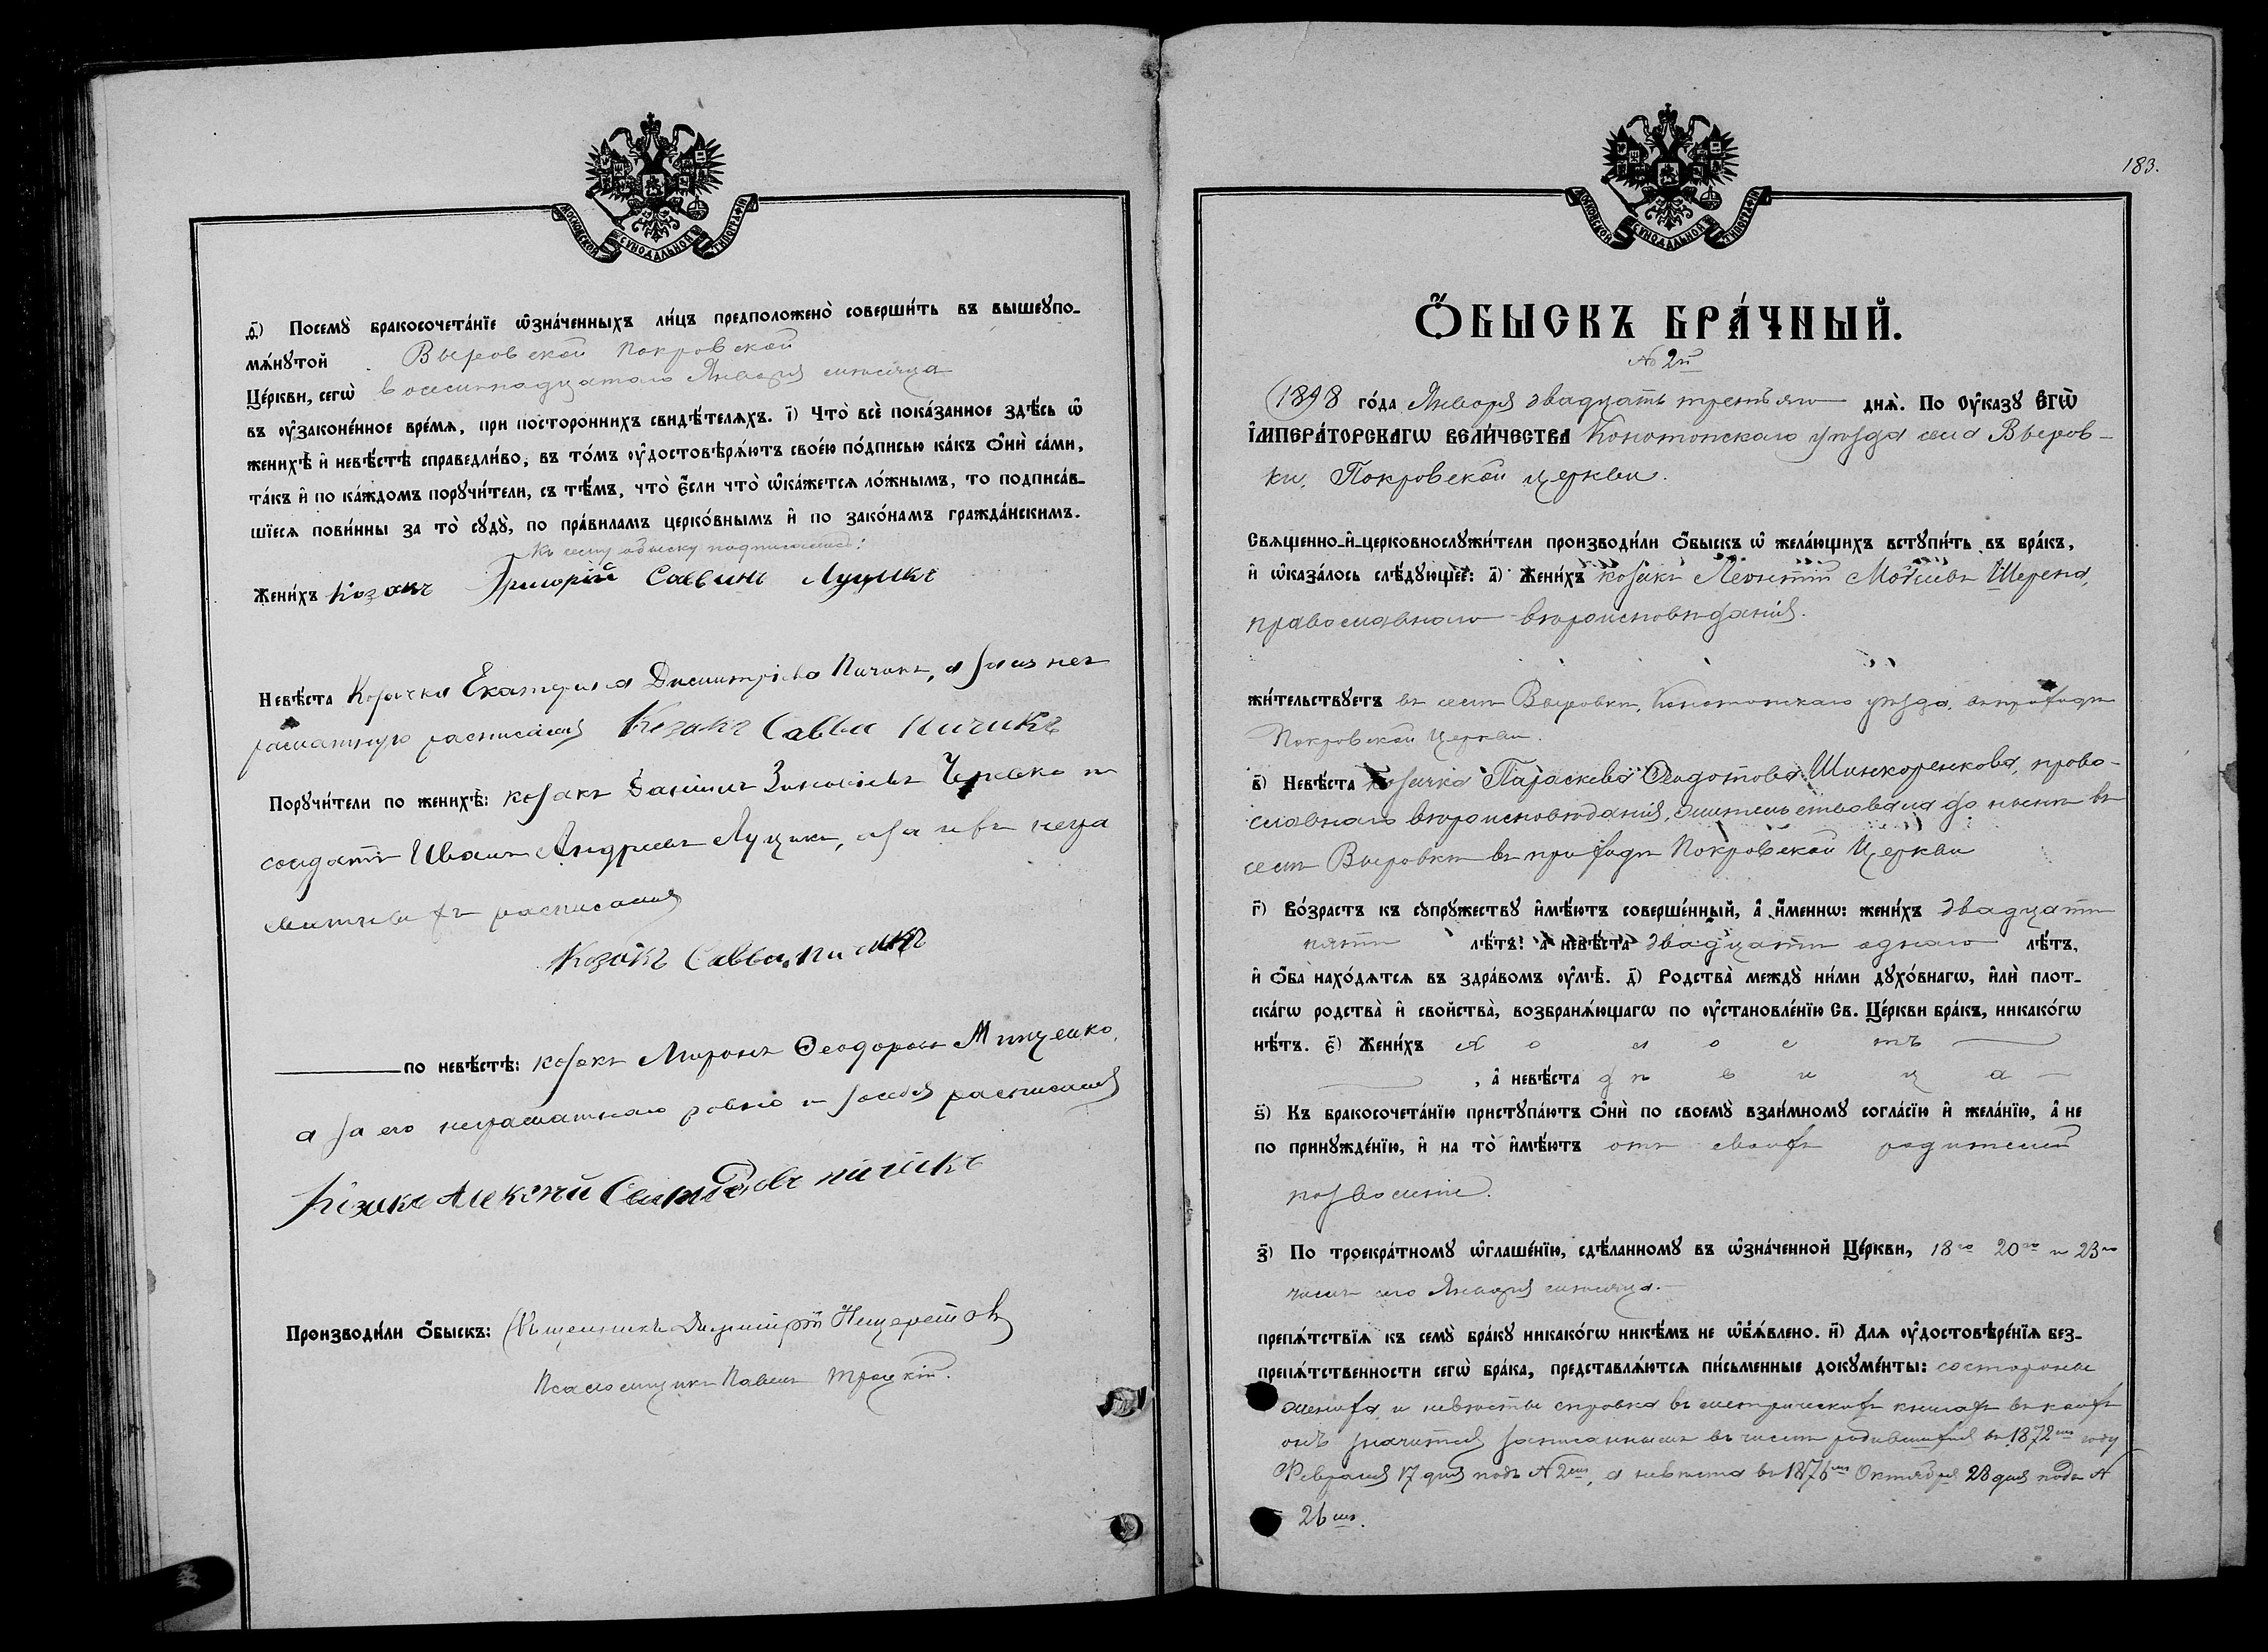 МОСКОВСКОЙ СѴНОДАЛЬНОЙ ТИПОГРАФІИ
д҃) Посемꙋ̀ бракосочета́нїе ѡ҆зна́ченныхъ ли́цъ предположено̀ соверши́ть въ вышеꙋпо-
мѧ́нꙋтой Выровской Покровской
Це́ркви, сегѡ̀ восемнадцатого Января месяца
въ ᲂу҆законе́нное вре́мѧ, при посторо́ннихъ свидѣ́телѧхъ. і҃) Что̀ всѐ пока́занное здѣ́сь ѡ҆
женихѣ̀ и҆ невѣ́стѣ справедли́во, въ то́мъ ᲂу҆достовѣрѧ́ютъ свое́ю по́дписью ка́къ ѻ҆нѝ са́ми,
та́къ и҆ по ка́ждомъ порꙋчи́тели, съ тѣ́мъ, что̀ є҆́сли что̀ ѡ҆ка́жетсѧ ло́жнымъ, то подписа́в-
шїесѧ пови́нны за то̀ сꙋдꙋ̀, по пра́виламъ церко́внымъ и҆ по зако́намъ гражда́нскимъ.
Къ сему обыску подписались:
Жени́хъ Козакъ Григорій Саввинъ Луцикъ
Невѣ́ста Козачка Екатерина Димитріева Пичикъ, а за нея
расписался Козакъ Савва Пичикъ
Порꙋчи́тели по женихѣ̀: козакъ Даніилъ Зиновіевъ Черевко и
солдатъ Иванъ Андреевъ Луцикъ, а за ихъ негра
мотныхъ расписался
Козакъ Савва Пичикъ
по невѣ́стѣ: козакъ Миронъ Ѳеодоровъ Мищенко,
а за его неграмотнаго равно и за себя расписался
Козакъ Алексѣй Свиридовъ Пичикъ
Производи́ли ѻ҆́быскъ: Священникъ Димитрій Нещеретовъ
Псаломщикъ Павелъ Троцкій.
183.
МОСКОВСКОЙ СѴНОДАЛЬНОЙ ТИПОГРАФІИ
Ѻ҆́БЫСКЪ БРА́ЧНЫЙ.
№ 2й
1898 го́да Января двадцать третьяго днѧ̀. По Оу҆ка́зꙋ Є҆гѡ̀
І҆мпера́торскагѡ Вели́чества Конотопскаго уѣзда села Выров-
ки, Покровской церкви.
Свѧщенно-и҆-церковнослꙋжи́тели производи́ли ѻ҆́быскъ ѡ҆ жела́ющихъ встꙋпи́ть въ бра́къ,
и҆ ѡ҆каза́лось слѣ́дꙋющее: а҃) Жени́хъ козакъ Леонтій Моѵсіевъ Шерепа,
православнаго вѣроисповѣданія.
жи́тельствꙋетъ въ селѣ Выровкѣ, Конотопскаго уѣзда, въ приходѣ
Покровской Церкви.
в҃) Невѣ́ста Козачка Параскева Ѳеодотова Шинкоренкова, право-
славнаго вѣроисповѣданія, жительствовала до нынѣ въ
селѣ Выровкѣ въ приходѣ Покровской Церкви
г҃) Во́зрастъ къ сꙋпрꙋ́жествꙋ и҆мѣ́ютъ соверше́нный, а҆ и҆́меннѡ: жени́хъ двадцати
пяти лѣ́тъ: а҆ невѣ́ста двадцати одного лѣ́тъ,
и҆ ѻ҆́ба нахо́дѧтсѧ въ здра́вомъ ᲂу҆мѣ̀. д҃) Родства̀ междꙋ̀ ни́ми дꙋхо́внагѡ, и҆лѝ плот-
ска́гѡ родства̀ и҆ свойства̀, возбранѧ́ющагѡ по ᲂу҆становле́нїю Св. Це́ркви бра́къ, никако́гѡ
нѣ́тъ. є҃) Жени́хъ холостъ
, а҆ невѣ́ста дѣвица
ѕ҃) Къ бракосочета́нїю пристꙋпа́ютъ ѻ҆нѝ по своемꙋ̀ взаи́мномꙋ согла́сїю и҆ жела́нїю, а҆ не
по принꙋжде́нїю, и҆ на то̀ и҆мѣ́ютъ отъ своихъ родителей
позволеніе.
з҃) По троекра́тномꙋ ѡ҆глаше́нїю, сдѣ́ланномꙋ въ ѡ҆зна́ченной Це́ркви, 18го 20го и 23го
чиселъ сего Января мѣсяца.
препѧ́тствїѧ къ семꙋ̀ бра́кꙋ никако́гѡ никѣ́мъ не ѡ҆б̾ѧ́влено. и҃) Длѧ ᲂу҆достовѣре́нїѧ без-
препѧ́тственности сегѡ̀ бра́ка, представлѧ́ютсѧ пи́сьменные докꙋме́нты: со стороны
жениха и невѣсты справка въ метрическихъ книгахъ въ коихъ
онъ значится записаннымъ въ числѣ родившихся въ 1872мъ году
Февраля 17 дня подъ № 2мъ, а невѣста въ 1876мъ Октября 28 дня подъ №
26мъ.